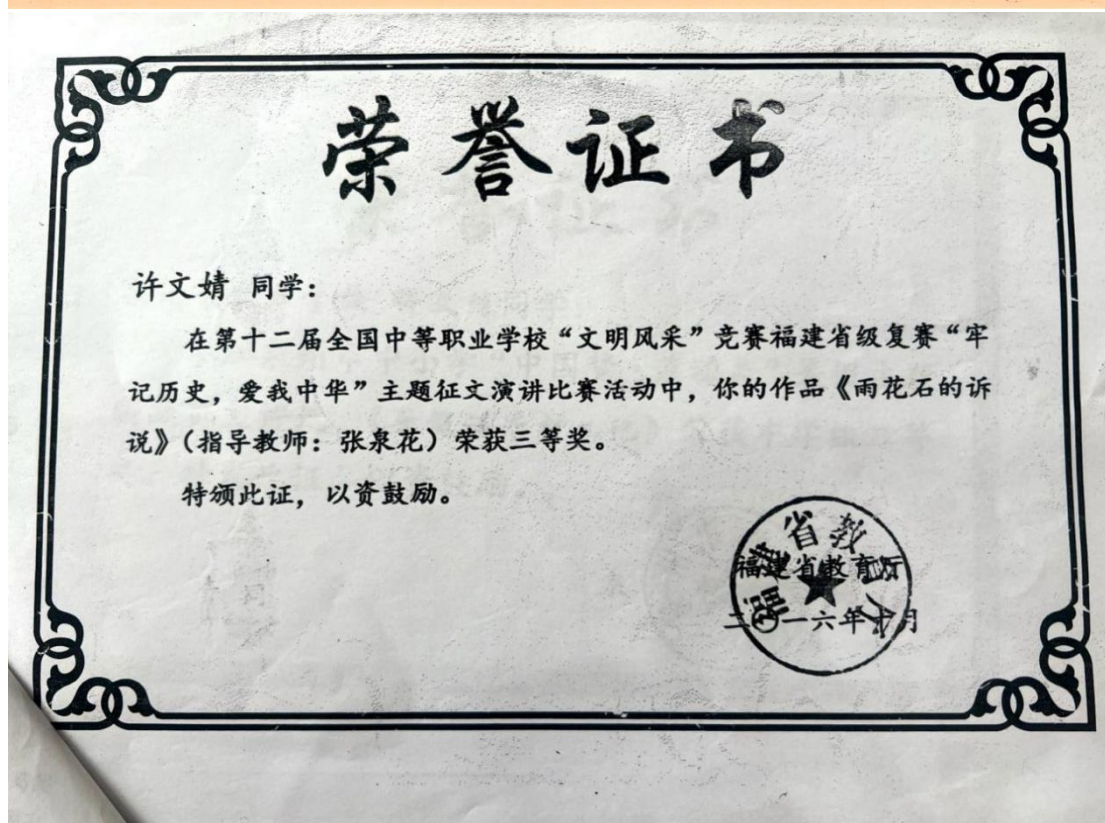 荣誉证书
许文婧 同学：
在第十二届全国中等职业学校“文明风采”竞赛福建省级复赛“牢
记历史，爱我中华”主题征文演讲比赛活动中，你的作品《雨花石的诉
说》（指导教师：张泉花）荣获三等奖。
特颁此证，以资鼓励。
福建省教育厅
福建省教育厅
二〇一六年 月